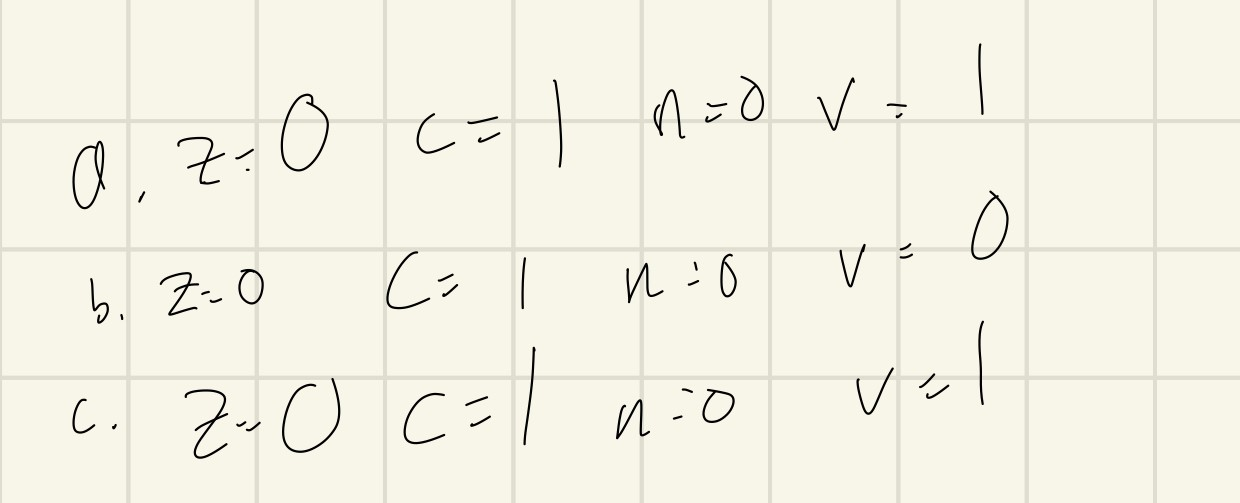 a. z=0 c=1 n=0 v=1
b. z=0 C=1 n=0 v=0
c. z=0 C=1 n=0 v=1